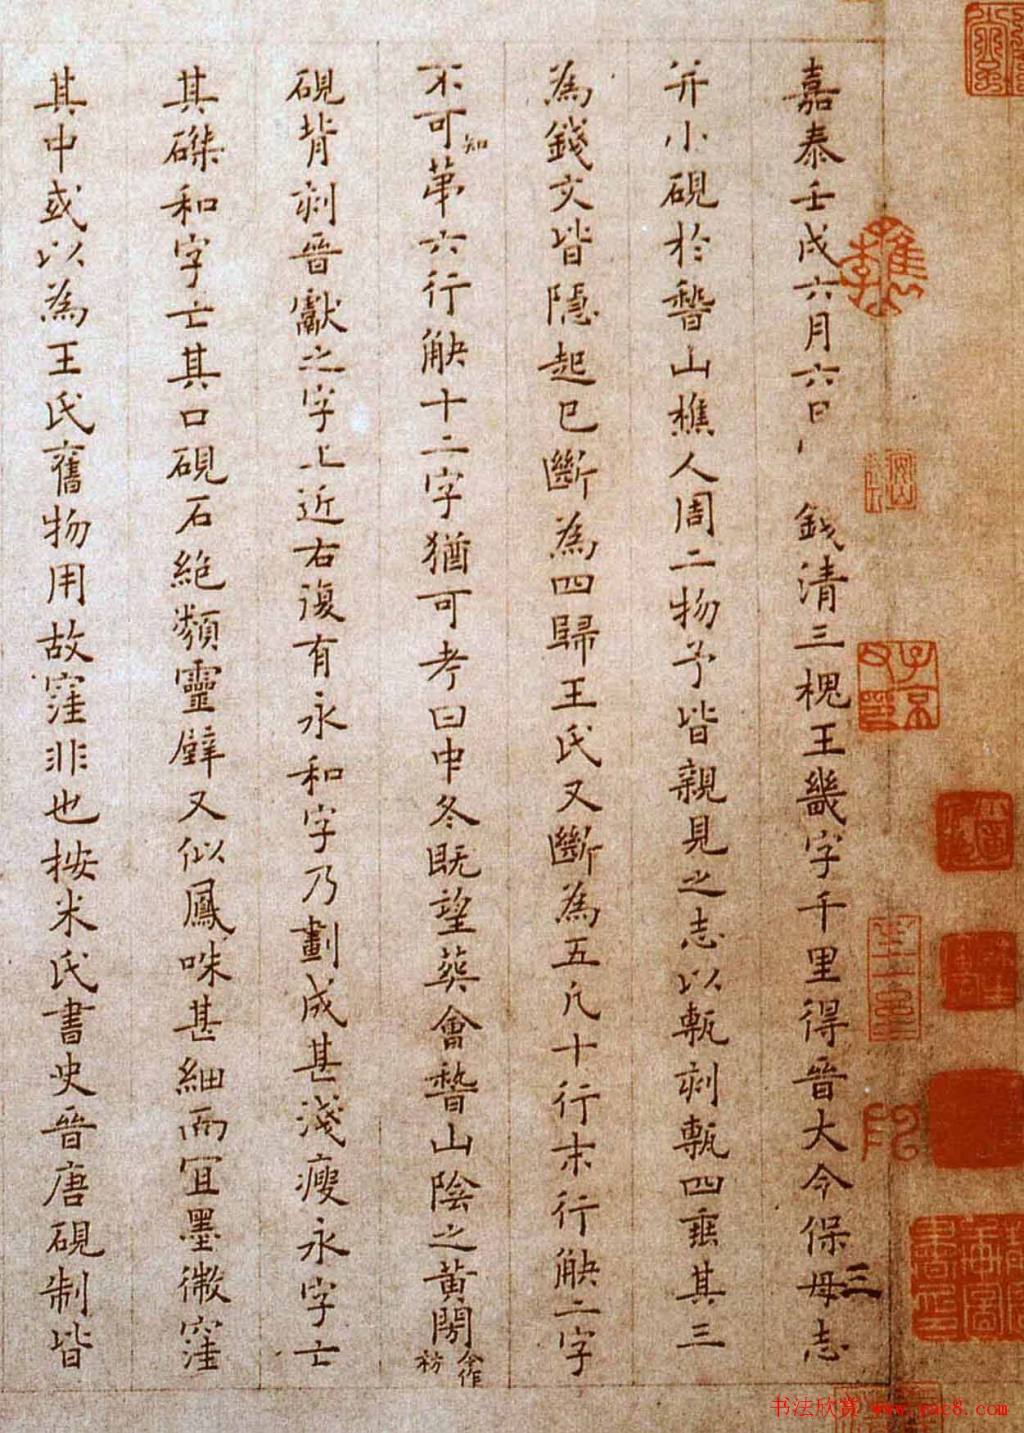 嘉泰壬戌六月六日錢清三槐王畿字千里得晉大令保母志
三
并小硯於嵇山樵人周二物予皆親見之志以甎刻甎四垂其三
為錢文皆隱起已斷為四歸王氏又斷為五凡十行末行缺二字
不可知第六行缺十二字猶可考曰中冬既望葬會嵇山陰之黃閍
硯背刻晉獻之字上近右復有永和字乃劃成甚淺瘦永字亡
其磔和字亡其口硯石絕類靈璧又似鳳咮甚細而宜墨微窪
其中或以為王氏舊物用故窪非也按米氏書史晉唐硯制皆
书法欣赏 www.yac8.com